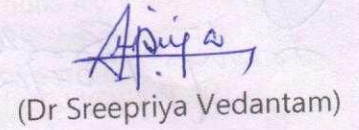 (Dr Sreepriya Vedantam)